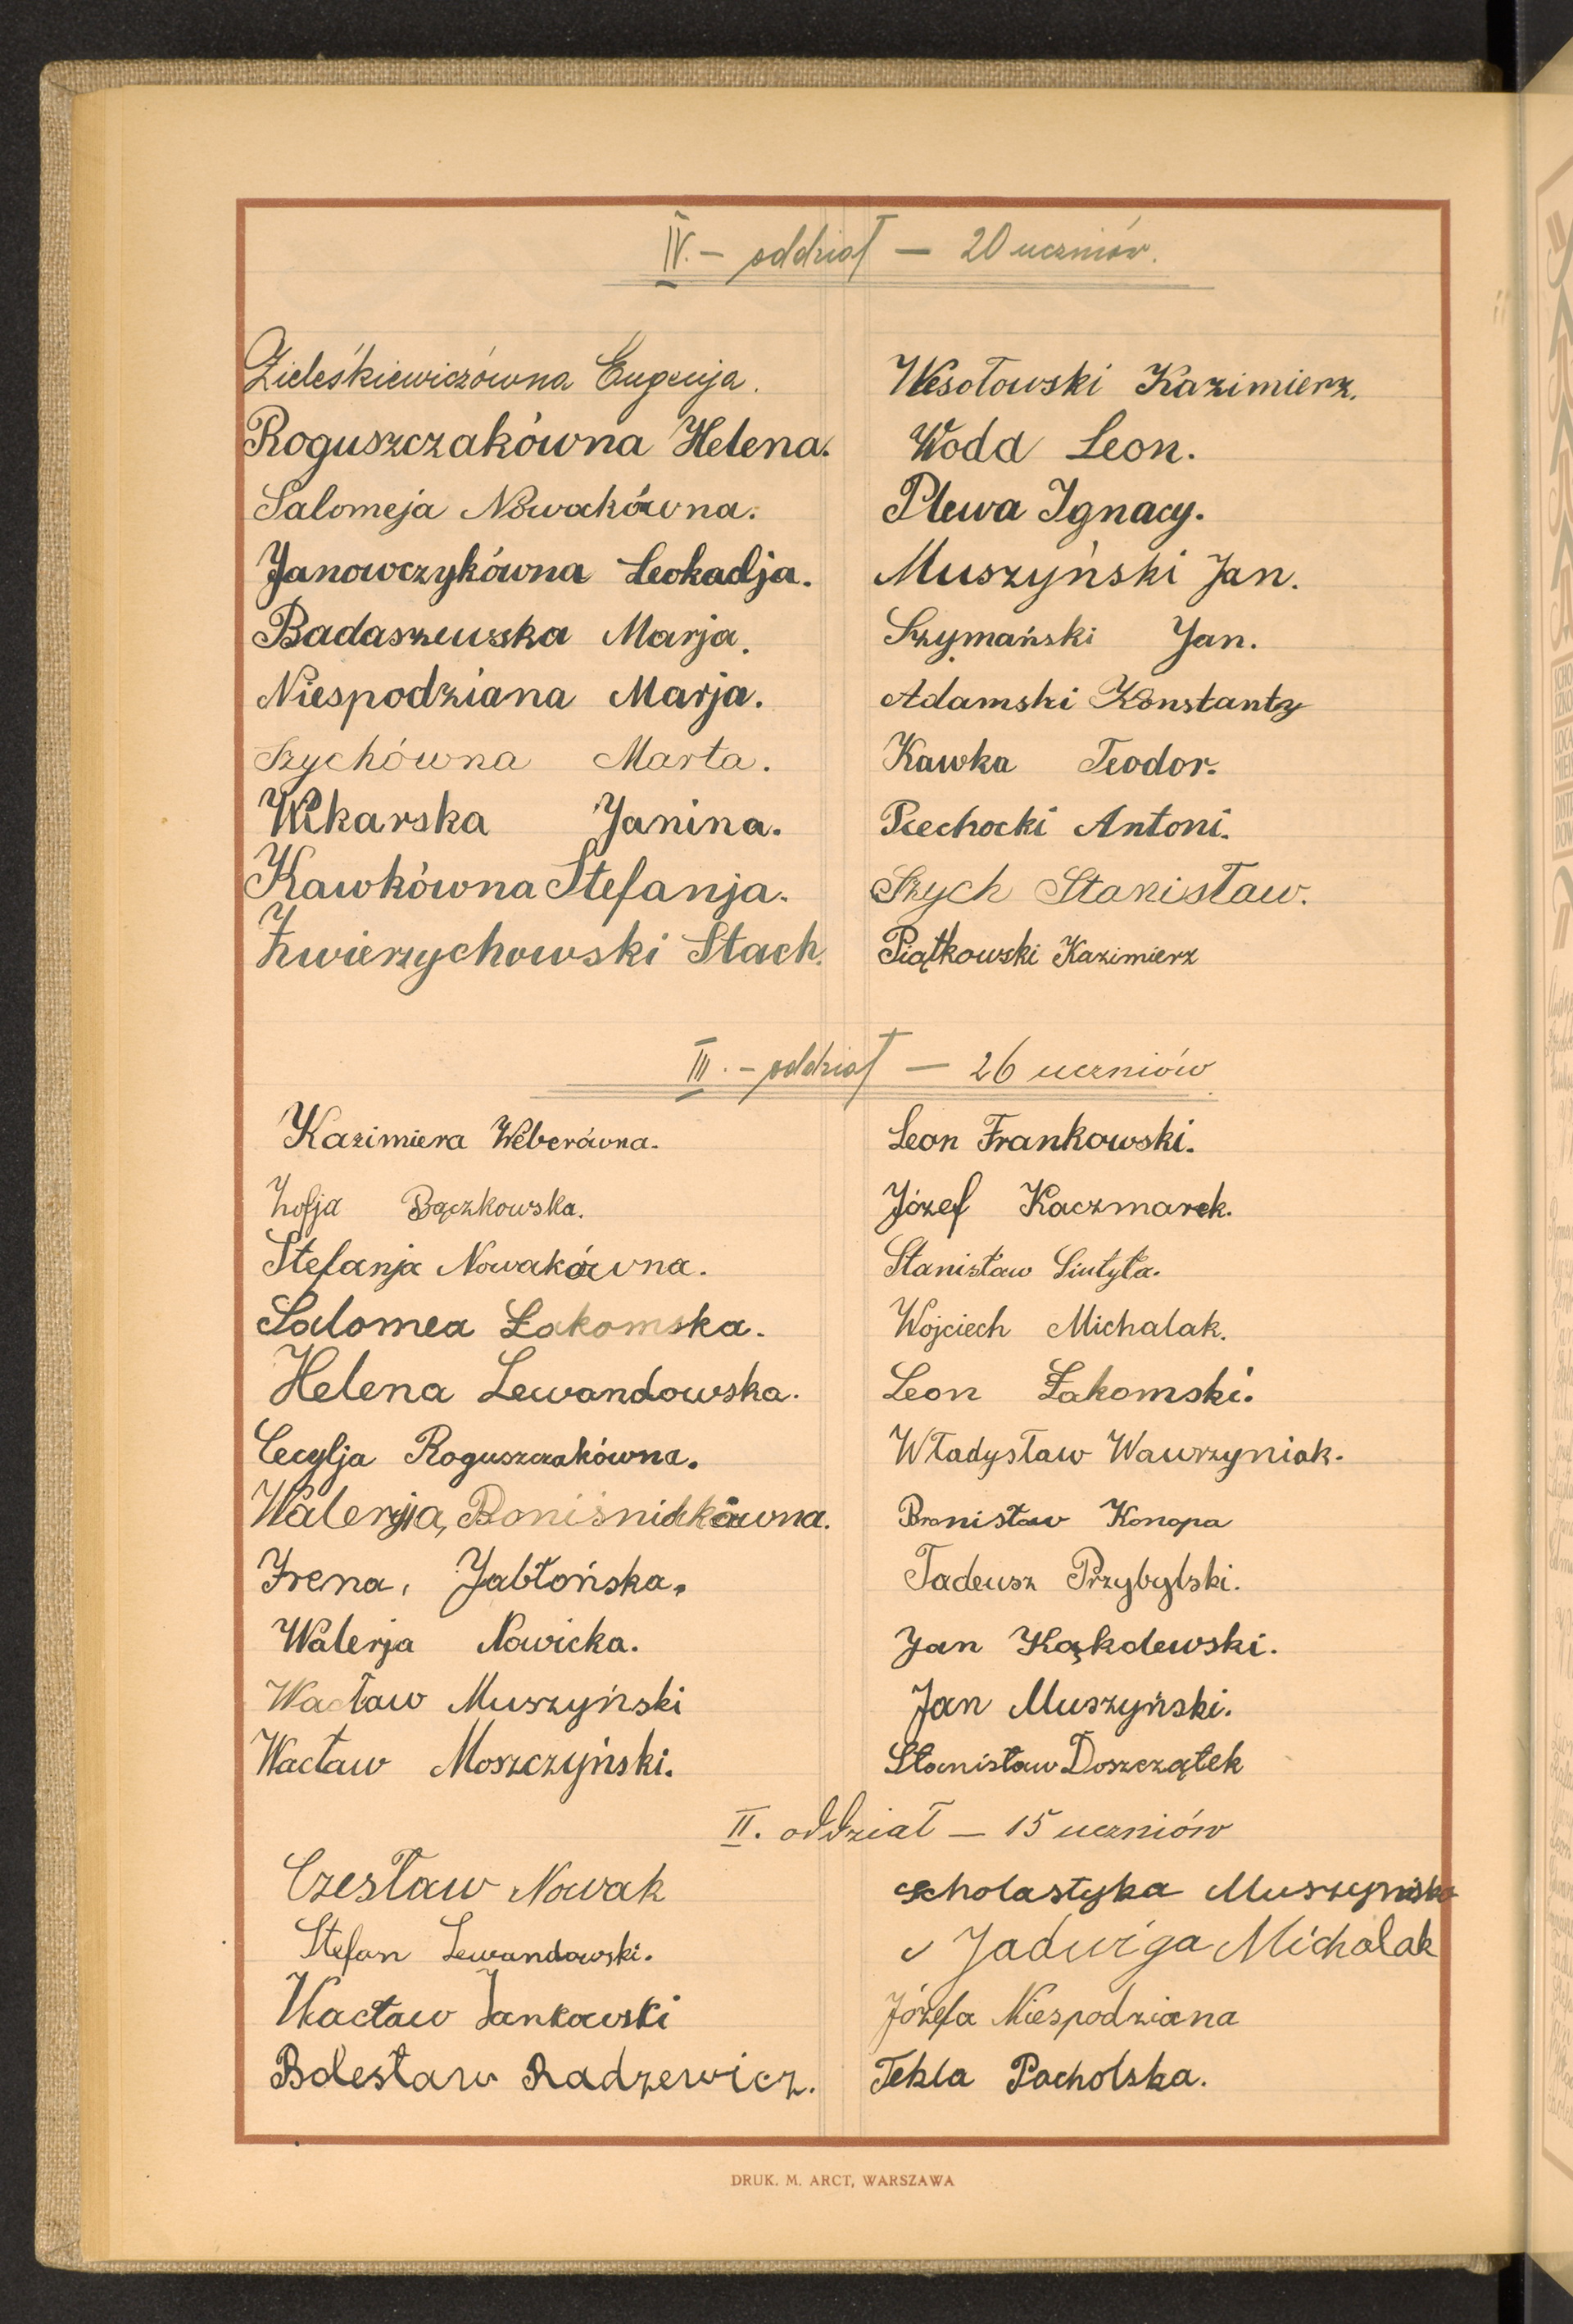 IV. – oddział – 20 uczniów.
Zieleśkiewiczówna Eugenja.
Roguszczakówna Helena.
Salomeja Nowakówna.
Janowczykówna Leokadja.
Badaszewska Marja.
Niespodziana Marja.
Szychówna Marta.
Wikarska Janina.
Kawkówna Stefanja.
Zwierzychowski Stach.
Wesołowski Kazimierz.
Woda Leon.
Plewa Ignacy.
Muszyński Jan.
Szymański Jan.
Adamski Konstanty
Kawka Teodor.
Piechocki Antoni.
Szych Stanisław.
Piątkowski Kazimierz
III. – oddział – 26 uczniów
Kazimiera Weberówna.
Zofja Bączkowska.
Stefanja Nowakówna.
Salomea Łakomska.
Helena Lewandowska.
Cecylja Roguszczakówna.
Walerja,
Irena, Jabłońska.
Walerja Nowicka.
Wacław Muszyński
Wacław Moszczyński.
Leon Frankowski.
Józef Kaczmarek.
Stanisław
Wojciech Michalak.
Leon Łakomski.
Władysław Wawrzyniak.
Bronisław Konopa
Tadeusz Przybylski.
Jan Kąkolewski.
Jan Muszyński.
Stanisław Doszczątek
II. oddział – 15 uczniów
Czesław Nowak
Stefan Lewandowski.
Wacław Jankowski
Bolesław Radzewicz.
Scholastyka Muszyńska
Jadwiga Michalak
Józefa Niespodziana
Tekla Pacholska.
DRUK. M. ARCT, WARSZAWA